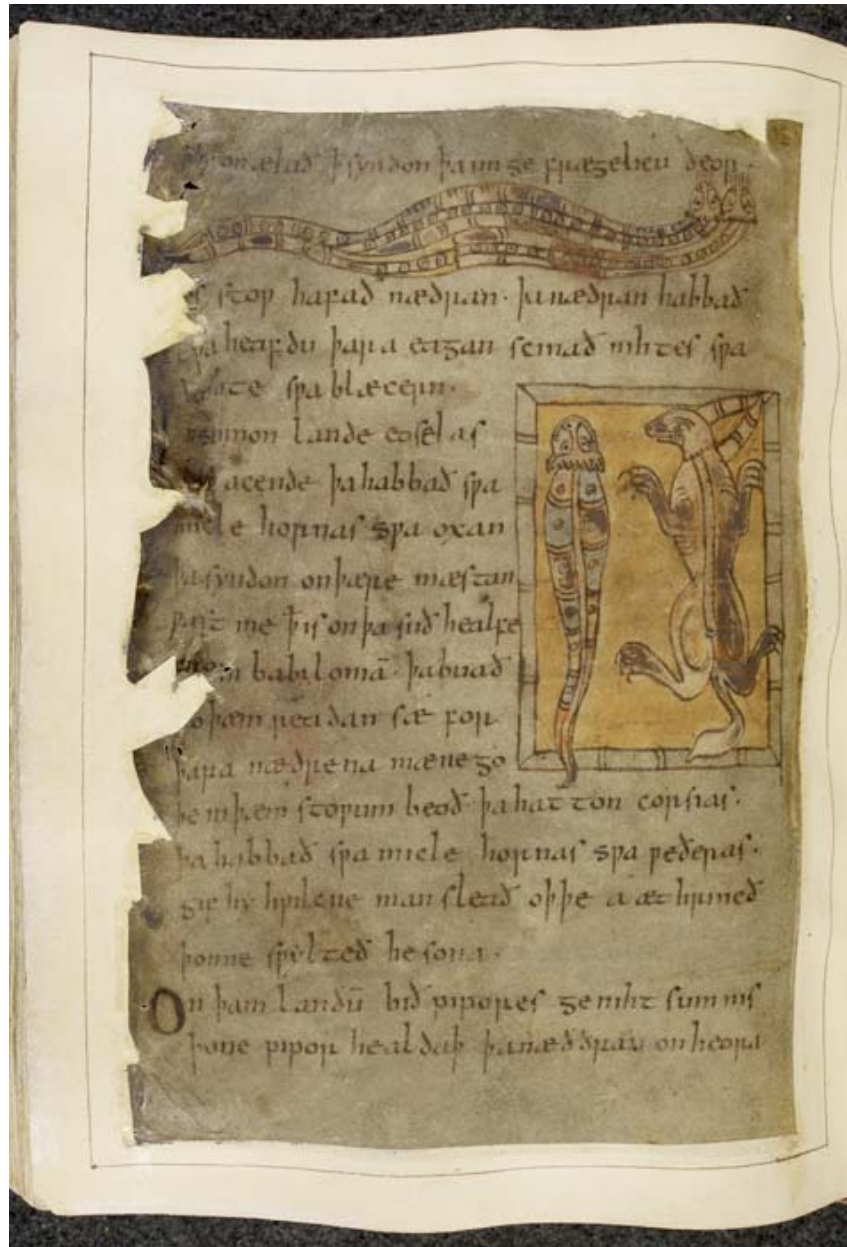 onælað ꝥ syndon þa unge frægelicu deor.
es stoƿ hafað nædran. þa nædran habbað
tƿa heafdu þara eagan scinað nihtes sƿa
sƿa blæcern.
sumon lande eoselas
acende þa habbað sƿa
micle hornas sƿa oxan
þa syndon on þære mæstan
ꝥ is on þa suð healfe
from babiloniā. þa buað
to þæm readan sæ for
þara nædrena mænego
þe in þæm stoƿum beoð þa hatton corsias.
þa habbað sƿa micle hornas sƿa ƿeðeras.
gif hy hƿilcne man sleað oþþe a æt hrineð
þonne sƿylteð he sona.
On þam landū bið pipores geniht sumnis
þone pipor healdaþ þa næddran on heora